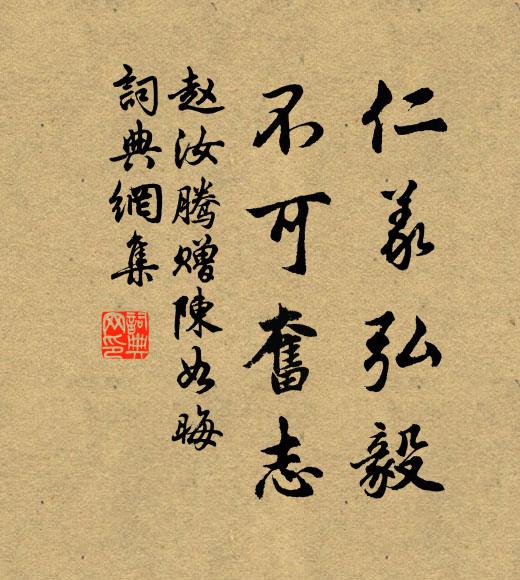 仁義弘毅
不可奮志
赵汝騰贈陳如晦
詞典網集
詞典
网印